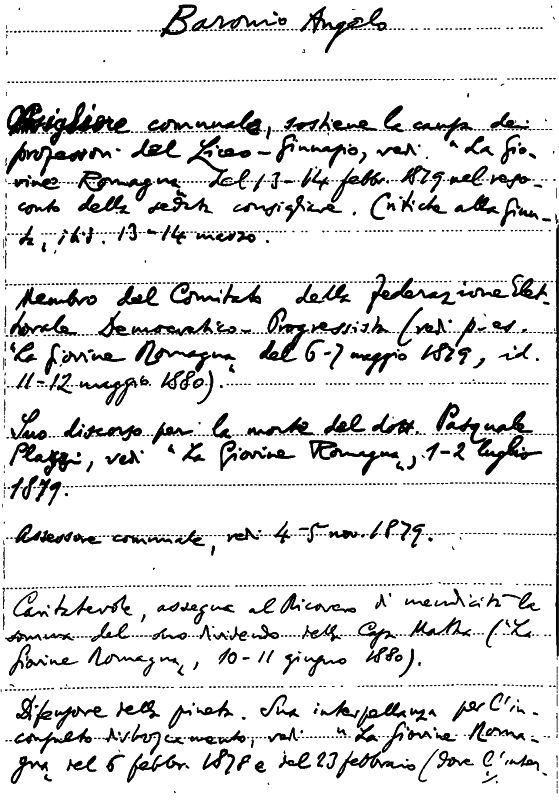 Baronio Angelo
Consigliere comunale, sostiene la causa dei
professori del Liceo-Ginnasio, vedi "La Gio-
vine Romagna" del 13-14 febbr. 1879 nel reso-
conto della seduta consigliare. Critiche alla Giun-
ta, ibid. 13-14 marzo.
Membro del Comitato della Federazione Elet-
torale Democratico-Progressista (vedi p. es.
"La Giovine Romagna" del 6-7 maggio 1879, id.
11-12 maggio 1880).
Suo discorso per la morte del dott. Pasquale
Plazzi, vedi "La Giovine Romagna", 1-2 luglio
1879.
Assessore comunale, vedi 4-5 nov. 1879.
Caritatevole, assegna al Ricovero di mendicità la
somma del suo dividendo della Casa Matha ("La
Giovine Romagna", 10-11 giugno 1880).
Difensore della pineta. Sua interpellanza per l'in-
consulto disboscamento, vedi "La Giovine Roma-
gna" del 6 febbr. 1878 e del 23 febbraio (dove l'inter-